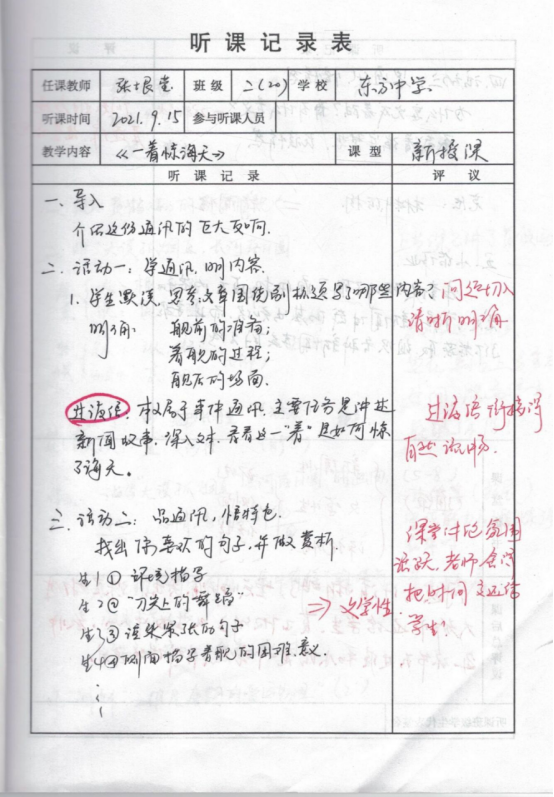 听课记录表
任课教师 张 班级 二(20) 学校 东方中学
听课时间 2021.9.15 参与听课人员
教学内容 《一着惊海天》 课型 新授课
听课记录 评议
一、导入
介绍这份通讯的巨大反响.
二、活动一：学通讯，明内容.
1. 学生默读，思考文章围绕舰机适写了哪些内容? 问题切入
明确： 舰前的准备； 清晰明确
着舰的过程；
舰后的场面.
过渡语：本文属于事件通讯，主要任务是讲述 过渡语衔接得
新闻故事，深入文本，看看这一“着”是如何惊 自然流畅.
了海天。
三、活动二：品通讯，悟特色.
找出你喜欢的句子，并做赏析 课堂讨论氛围
生1① 环境描写 活跃，老师会
生2② “刀尖上的舞蹈” ⇒ 文学性 把时间交还给
生3③ 紧张的句子 学生!
生4④ 侧面描写着舰的困难、意义.